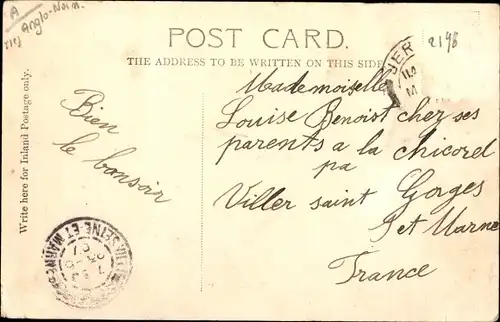 A
Iles Anglo-Norm.
POST CARD.
THE ADDRESS TO BE WRITTEN ON THIS SIDE
2196
JER
Write here for Inland Postage only.
Bien
le bonsoir
Mademoiselle
Louise Benoist chez ses
parents a la chicorel
pa
Viller saint Gorges
Set Marne
France
SEINE-ET-MARNE